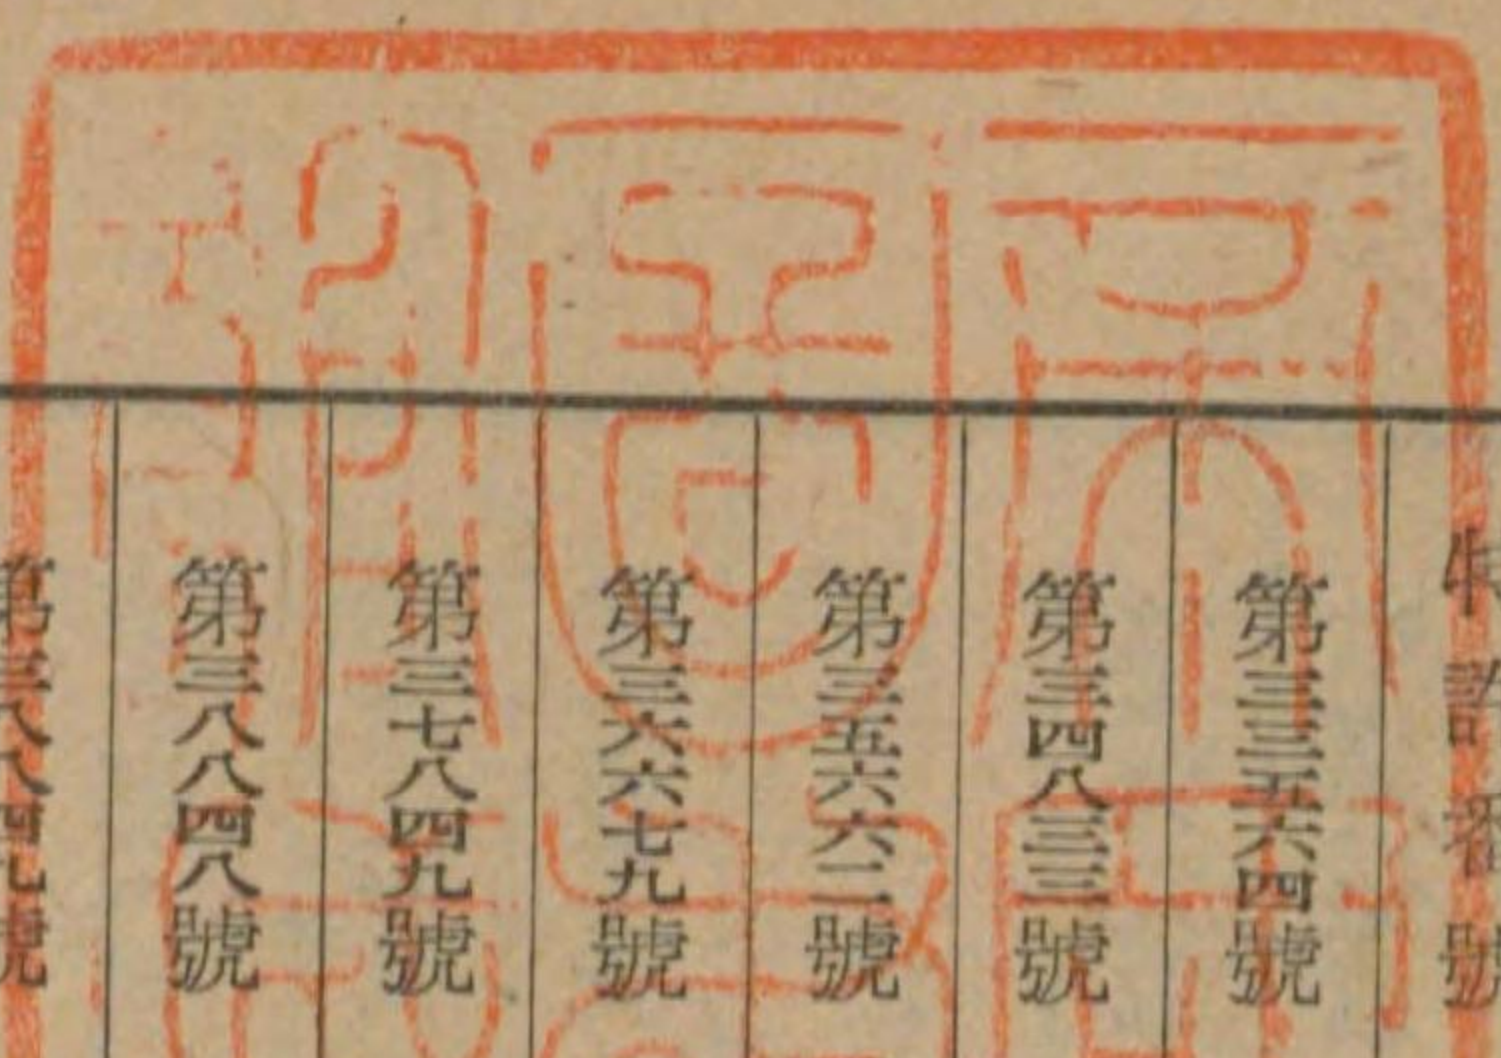 特許番號
第三三五六四號
第三四八三三號
第三五六六二號
第三六六七九號
第三七八四九號
第三八八四八號
第三八八四九號